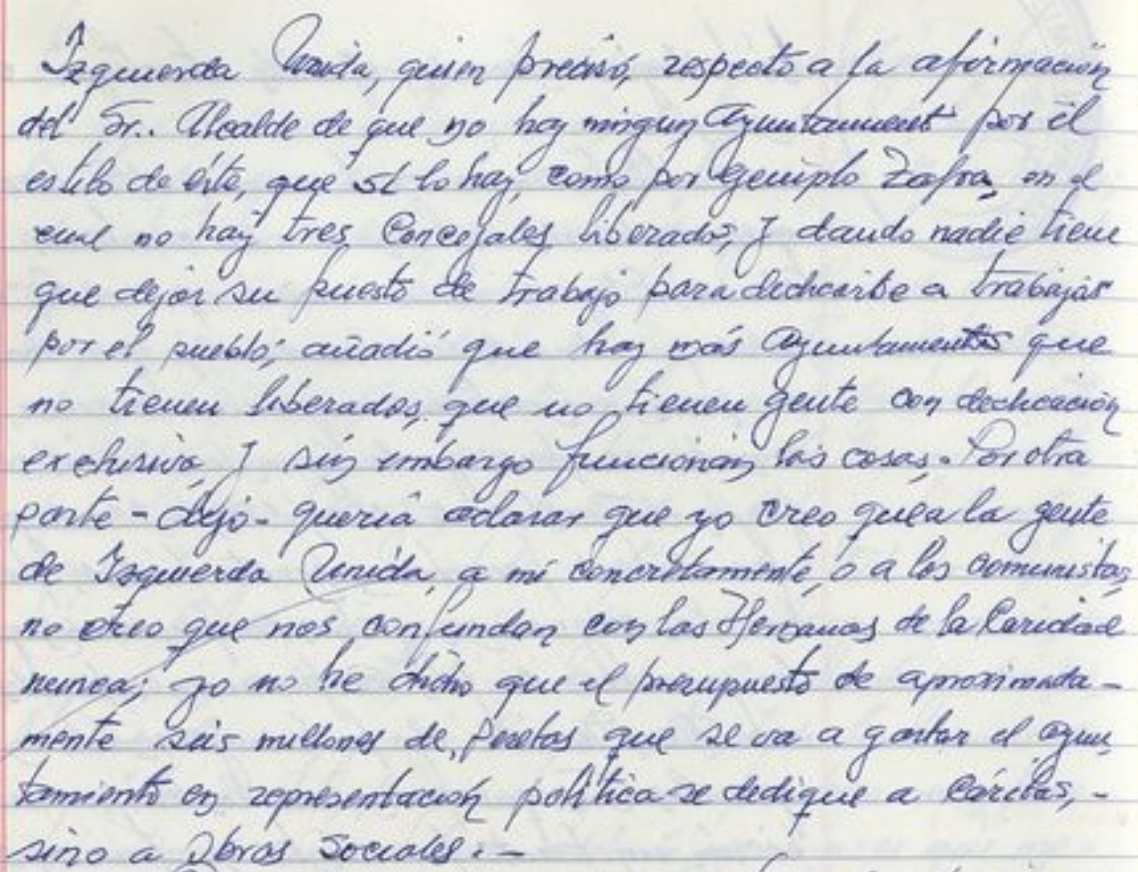 Izquierda Unida, quien precisó, respecto a la afirmación
del Sr. Alcalde de que no hay ningun Ayuntamient por el
estilo de éste, que sí lo hay, como por ejemplo Zafra, en el
cual no hay tres Concejales liberados, y donde nadie tiene
que dejar su puesto de trabajo para dedicarse a trabajar
por el pueblo; añadió que hay más Ayuntamientos que
no tienen liberados, que no tienen gente con dedicación
exclusiva, y sin embargo funcionan las cosas. Por otra
parte - dijo - quería aclarar que yo creo que a la gente
de Izquierda Unida, a mí concretamente, o a los comunistas,
no creo que nos confundan con las Hermanas de la Caridad
nunca; yo no he dicho que el presupuesto de aproximada-
mente seis millones de pesetas que se va a gastar el ayun
tamiento en representación política se dedique a Cáritas, -
sino a Obras Sociales. -